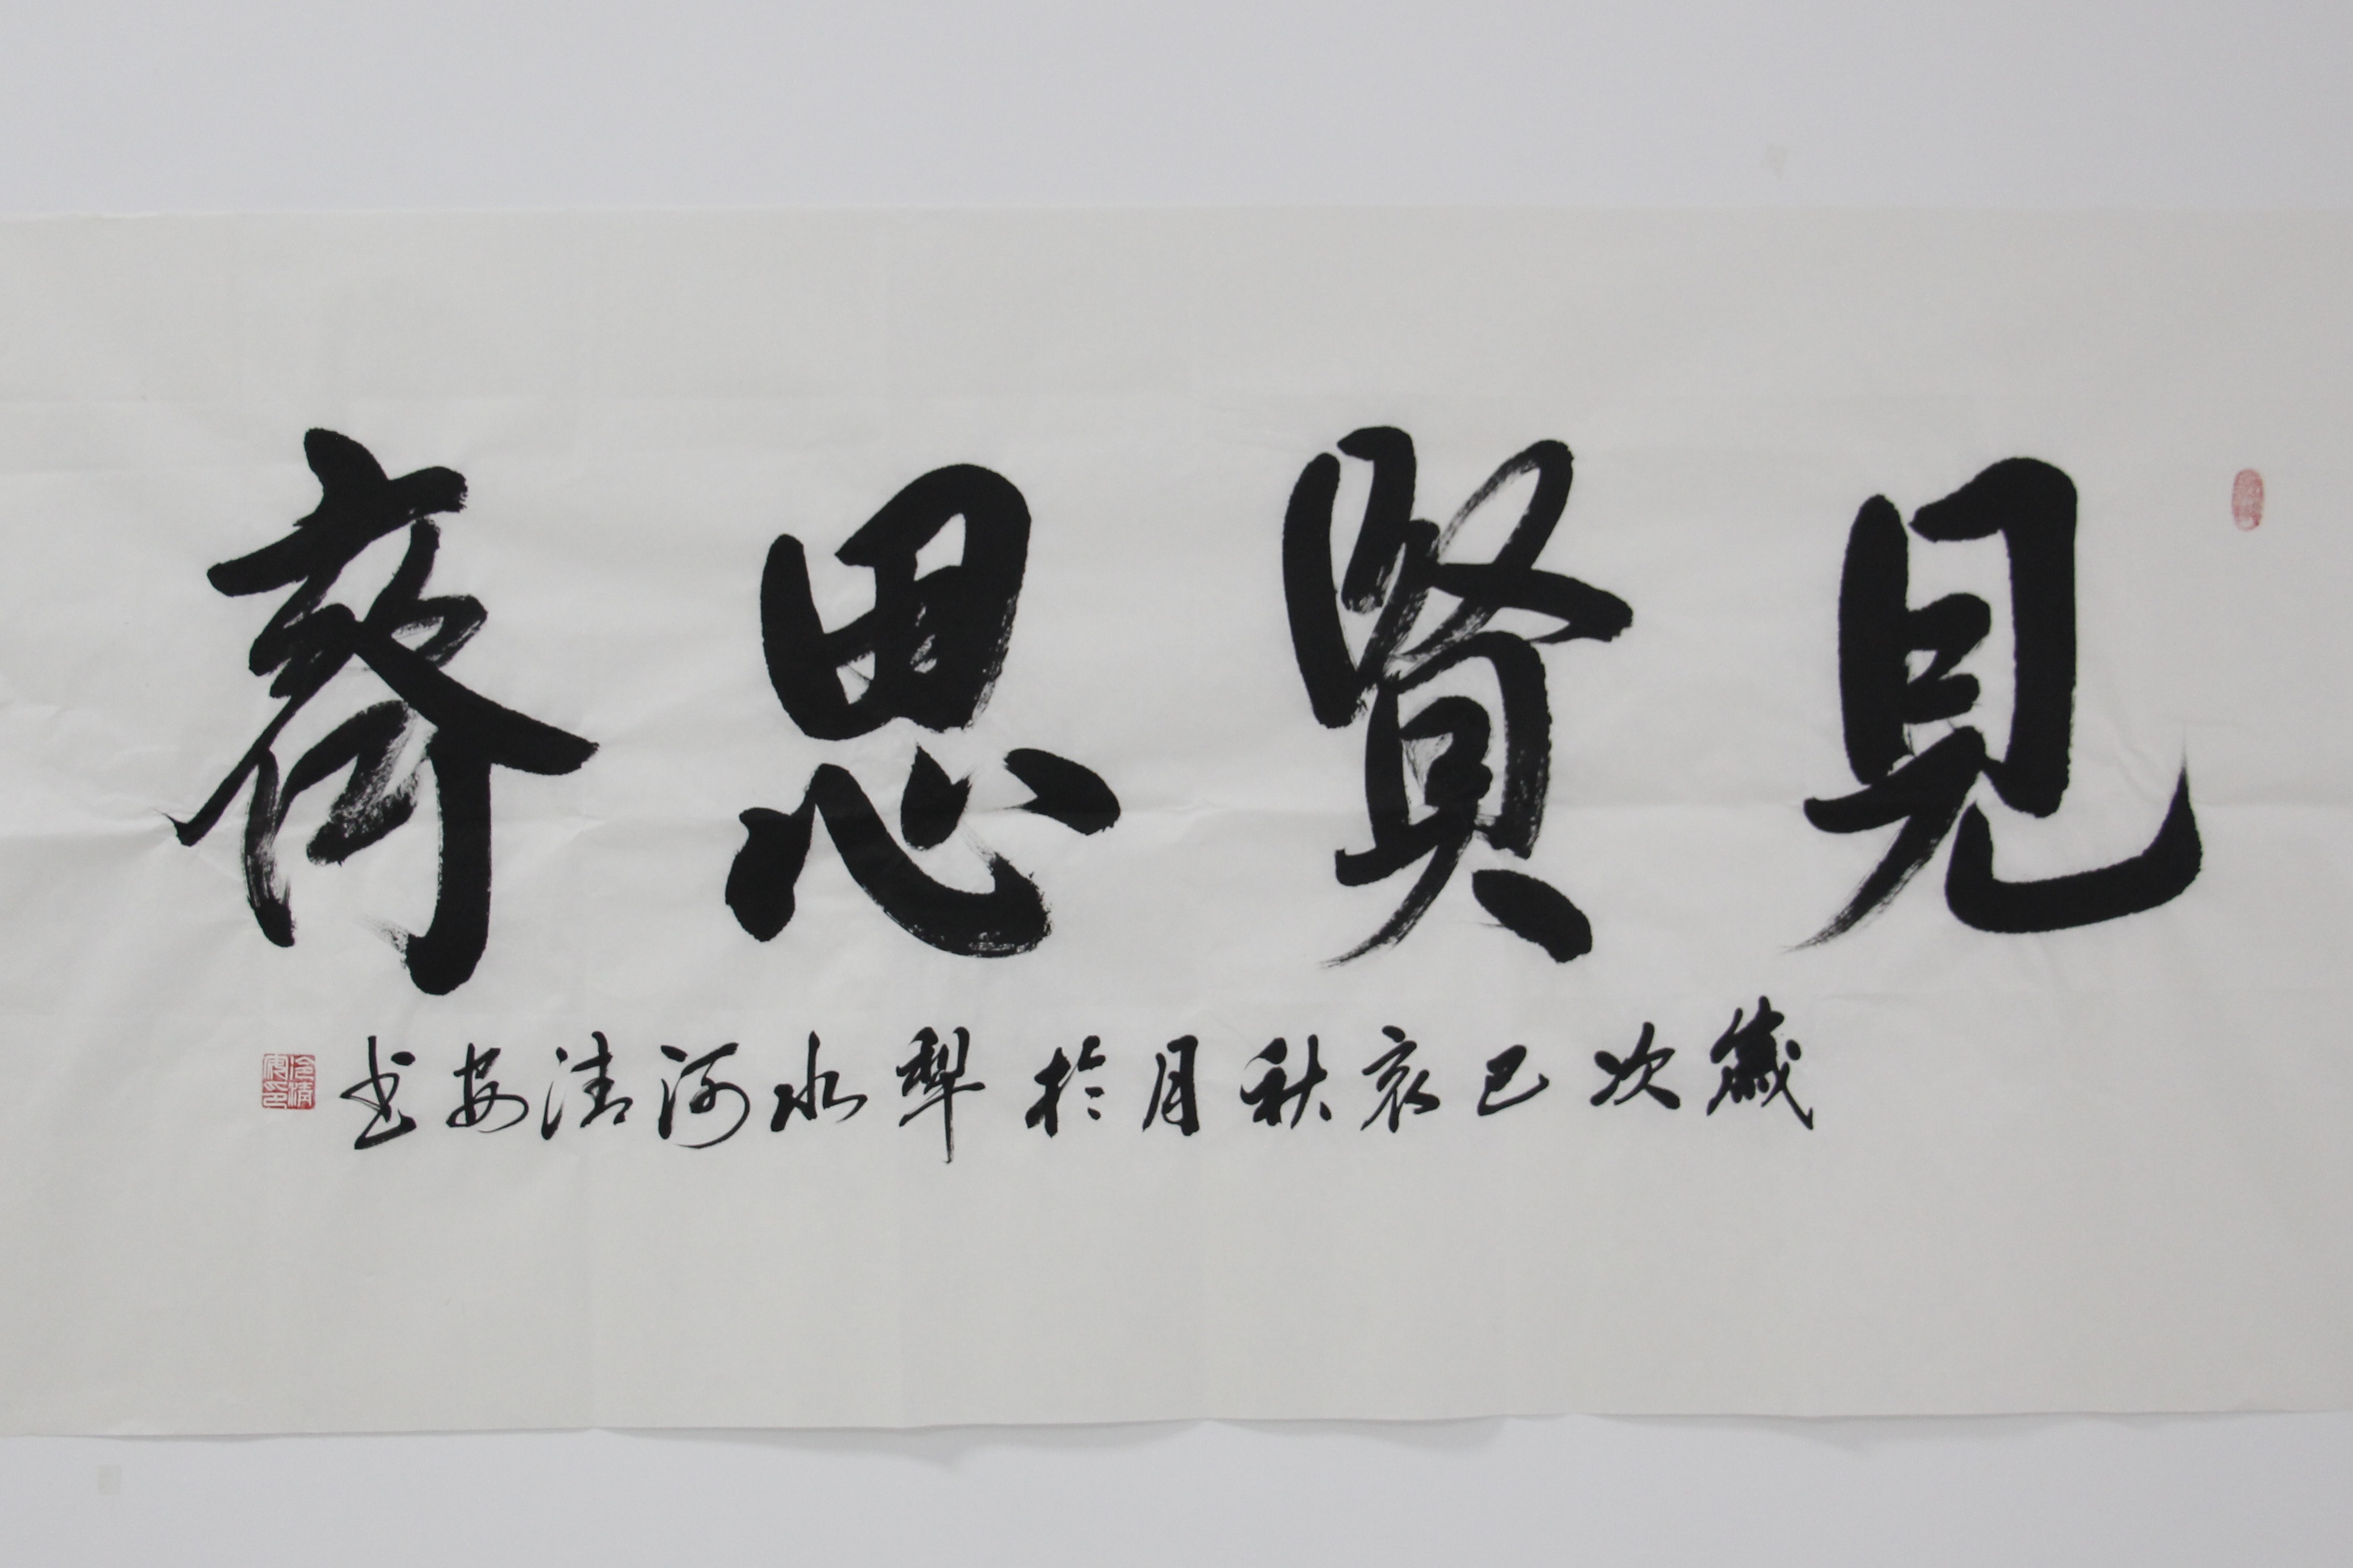 見賢思齊
歲次己亥秋月於犁水河清安书